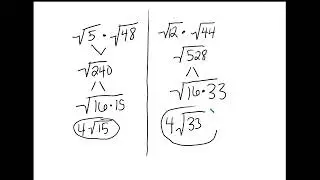 √5 · √48
√240
√16·15
4√15
√12 · √44
√528
√16·33
4√33